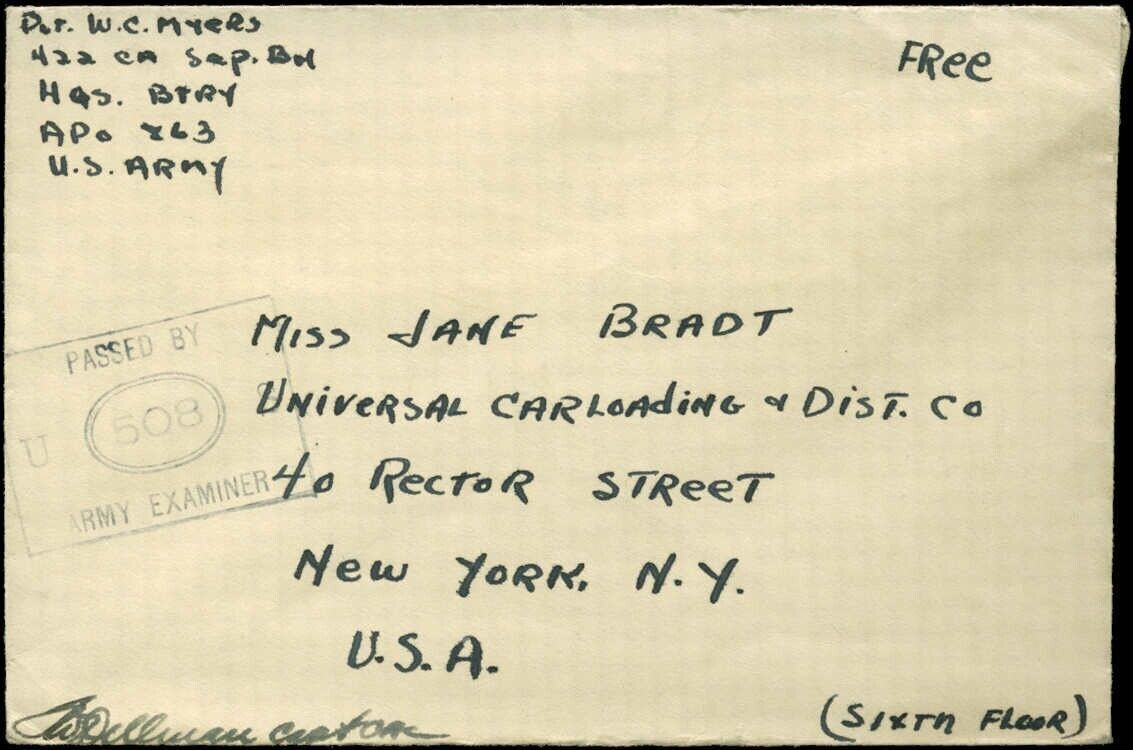 Pvt. W.C. Myers
422 CA Sep. Bn
Hqs. Btry
APO 863
U.S. Army
Free
PASSED BY
U 508
ARMY EXAMINER
Miss Jane Bradt
Universal Carloading & Dist. Co
40 Rector Street
New York, N.Y.
U.S.A.
(Sixth Floor)